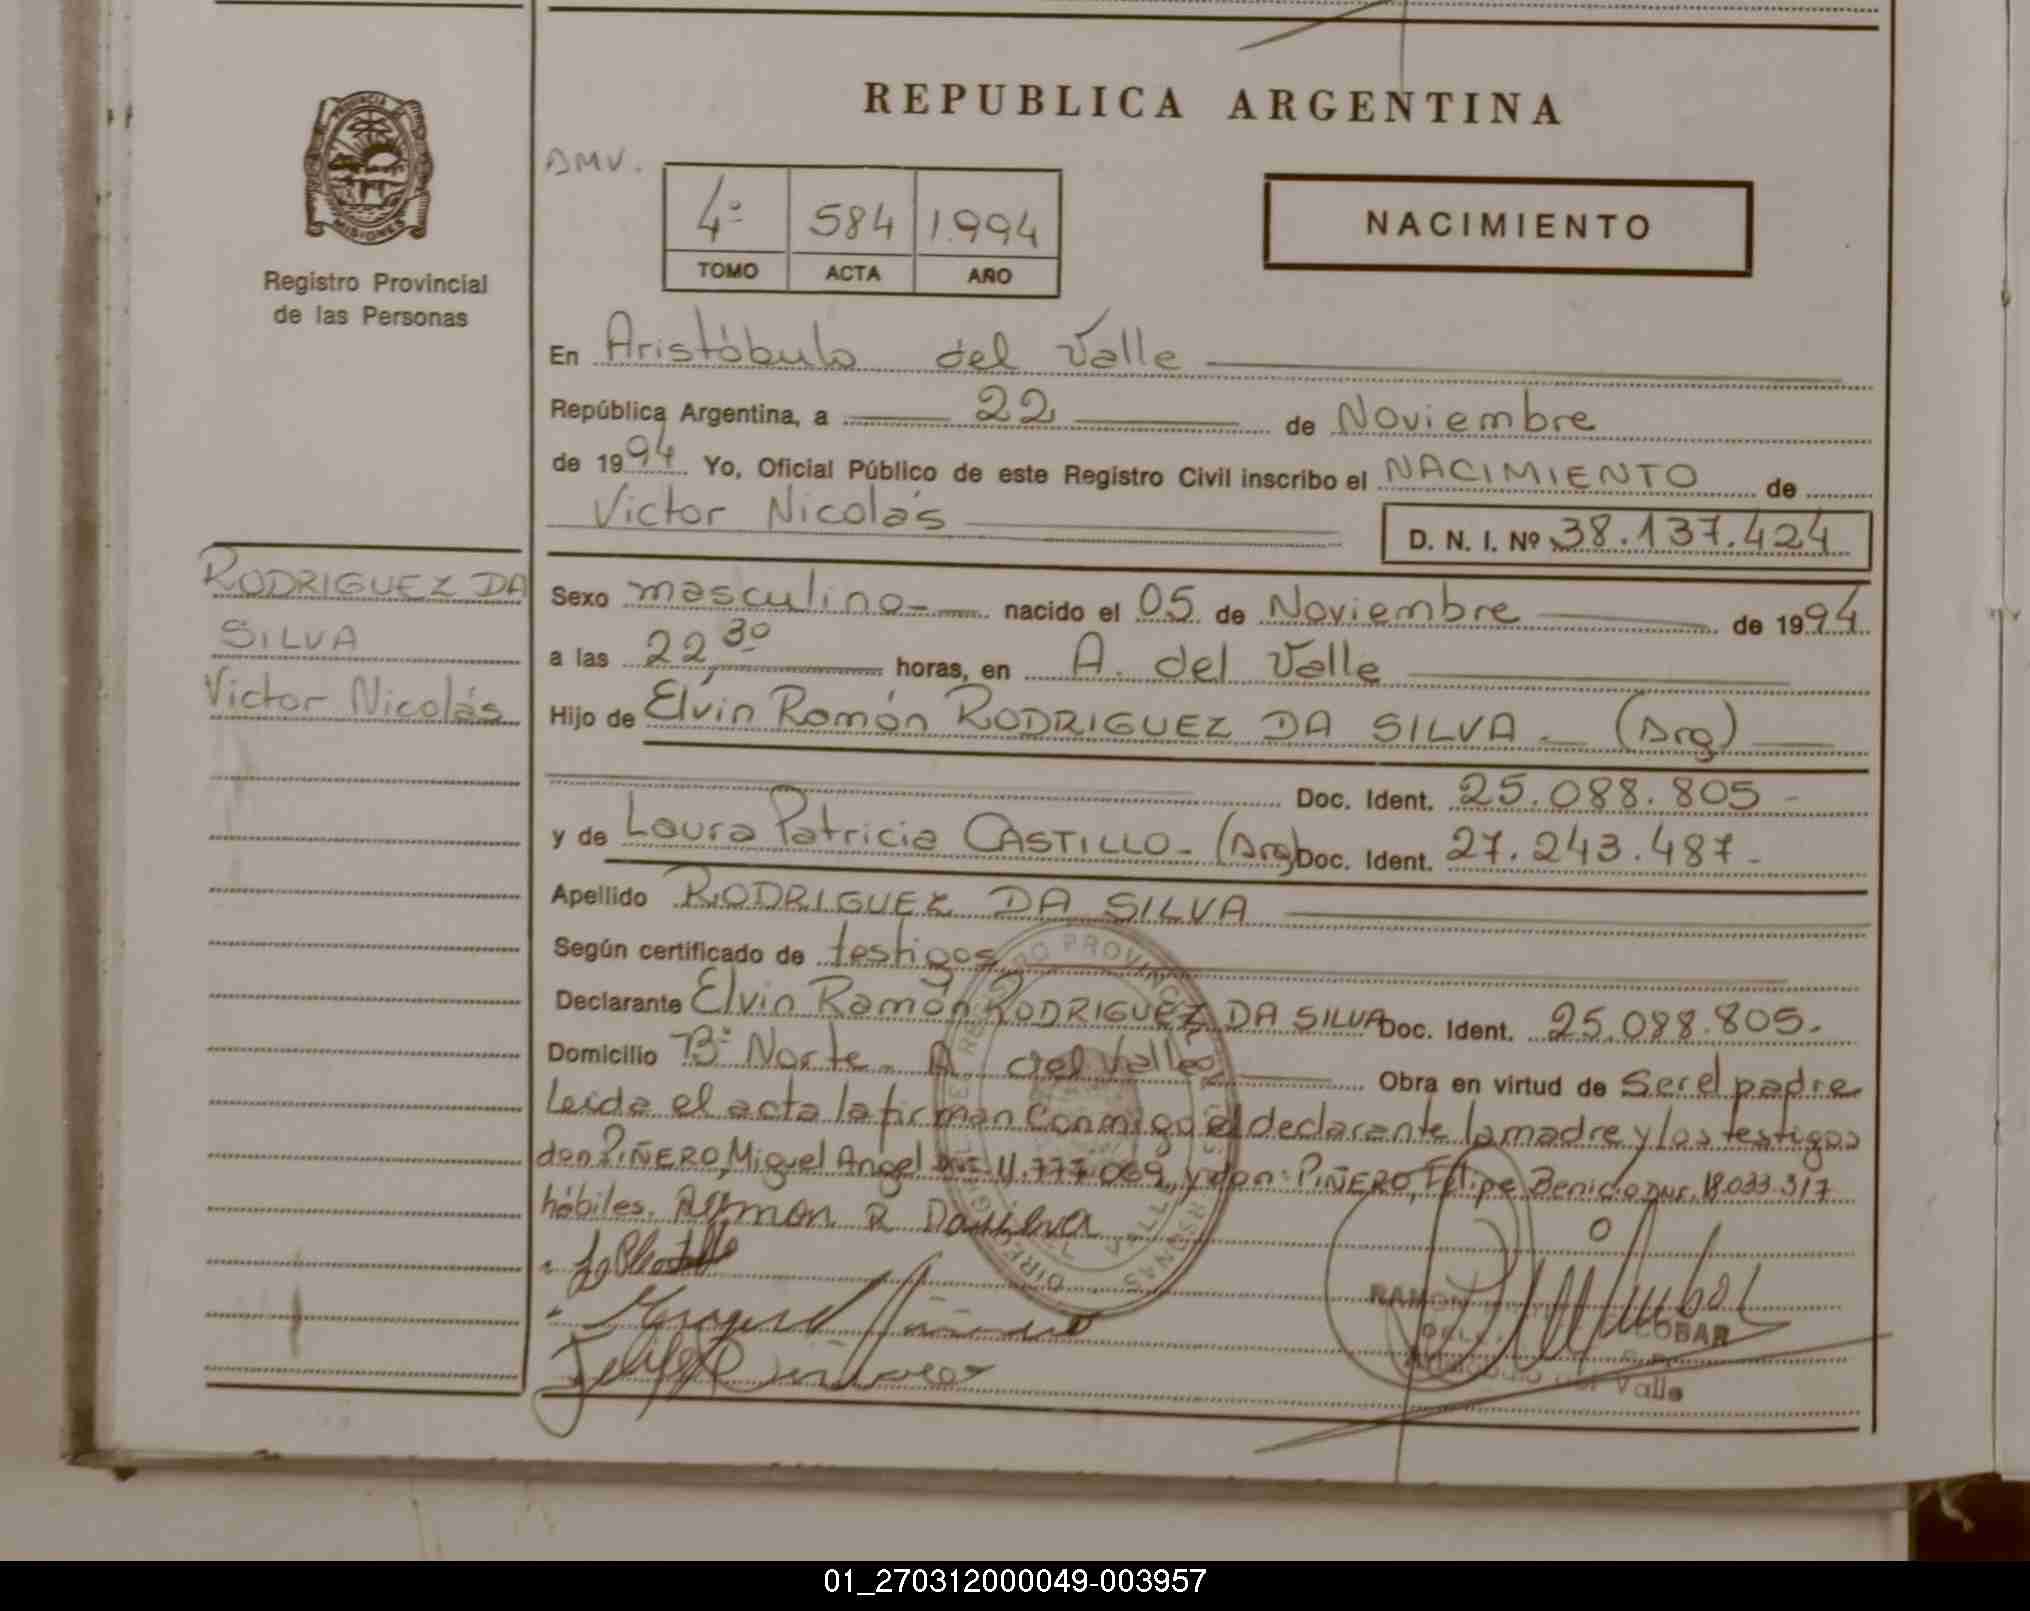 REPUBLICA ARGENTINA
PROVINCIA DE
MISIONES
Registro Provincial
de las Personas
DMV.
4º 584 1.994
TOMO ACTA AÑO
NACIMIENTO
En Aristóbulo del Valle
República Argentina, a 22 de Noviembre
de 1994 Yo, Oficial Público de este Registro Civil inscribo el NACIMIENTO de
Victor Nicolás
D. N. I. Nº 38.137.424
RODRIGUEZ DA
SILVA
Victor Nicolás
Sexo masculino nacido el 05 de Noviembre de 1994
a las 22,30 horas, en A. del Valle
Hijo de Elvin Ramón RODRIGUEZ DA SILVA (Arg)
Doc. Ident. 25.088.805
y de Laura Patricia CASTILLO - (Arg) Doc. Ident. 27.243.487-
Apellido RODRIGUEZ DA SILVA
Según certificado de testigos
Declarante Elvin Ramón RODRIGUEZ DA SILVA Doc. Ident. 25.088.805.
Domicilio Bº Norte - A. del Valle Obra en virtud de ser el padre
Leida el acta la firman conmigo el declarante la madre y los testigos
don PIÑERO, Miguel Angel DNI 11.777.069, y don: PIÑERO, Felipe Benicio DNI. 18.033.317
hábiles. Ramon R Dasilva
RAMON
COBAR
del Valle
01_270312000049-003957